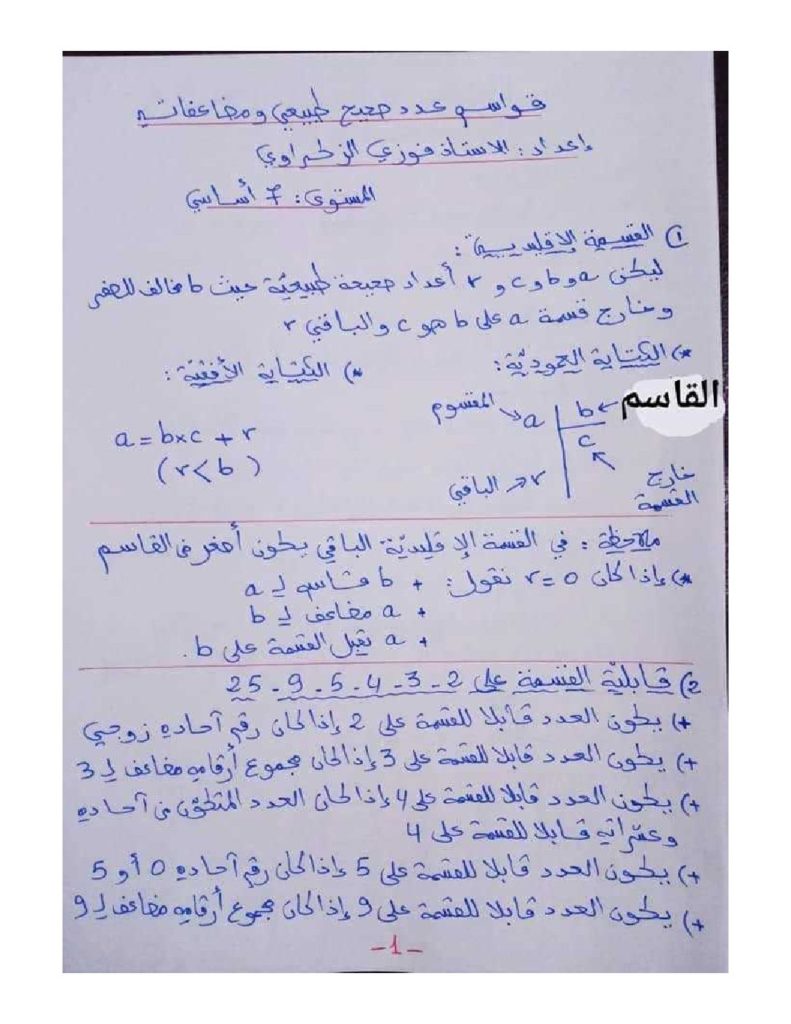 قواسم عدد صحيح طبيعي ومضاعفاته
إعداد : الاستاذ فوزي الزكراوي
المستوى : 7 أساسي
1) القسمة الإقليدية :
ليكن a و b و c و r أعداد صحيحة طبيعيّة حيث b مخالف للصفر
وخارج قسمة a على b هو c والباقي r
*) الكتابة العموديّة :
*) الكتابة الأفقيّة :
المقسوم → a
b ← القاسم
c
خارج
القسمة
r → الباقي
a = b×c + r
(r < b)
ملاحظة : في القسمة الإقليديّة الباقي يكون أصغر من القاسم
*) إذا كان r = 0 نقول : + b قاسم لـ a
+ a مضاعف لـ b
+ a تقبل القسمة على b.
2) قابليّة القسمة على 2 - 3 - 4 - 5 - 9 - 25
+) يكون العدد قابلا للقسمة على 2 إذا كان رقم آحاده زوجي
+) يكون العدد قابلا للقسمة على 3 إذا كان مجموع أرقامه مضاعف لـ 3
+) يكون العدد قابلا للقسمة على 4 إذا كان العدد المتكوّن من آحاده
وعشراته قابلا للقسمة على 4
+) يكون العدد قابلا للقسمة على 5 إذا كان رقم آحاده 0 أو 5
+) يكون العدد قابلا للقسمة على 9 إذا كان مجموع أرقامه مضاعف لـ 9
-1-